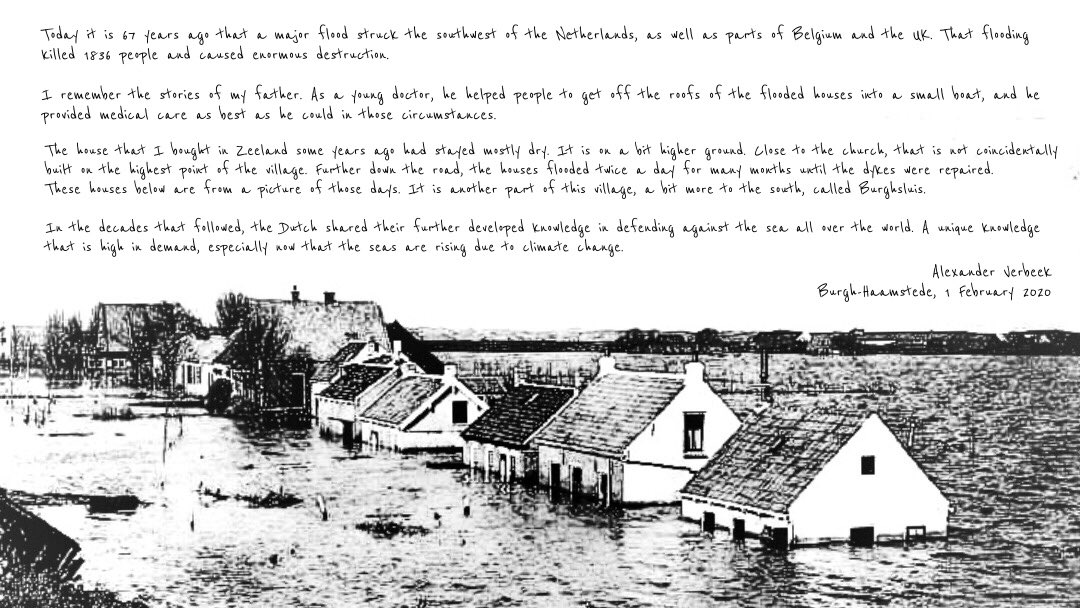 Today it is 67 years ago that a major flood struck the southwest of the Netherlands, as well as parts of Belgium and the UK. That flooding
killed 1836 people and caused enormous destruction.
I remember the stories of my father. As a young doctor, he helped people to get off the roofs of the flooded houses into a small boat, and he
provided medical care as best as he could in those circumstances.
The house that I bought in Zeeland some years ago had stayed mostly dry. It is on a bit higher ground. Close to the church, that is not coincidentally
built on the highest point of the village. Further down the road, the houses flooded twice a day for many months until the dykes were repaired.
These houses below are from a picture of those days. It is another part of this village, a bit more to the south, called Burghsluis.
In the decades that followed, the Dutch shared their further developed knowledge in defending against the sea all over the world. A unique knowledge
that is high in demand, especially now that the seas are rising due to climate change.
Alexander Verbeek
Burgh-Haamstede, 1 February 2020